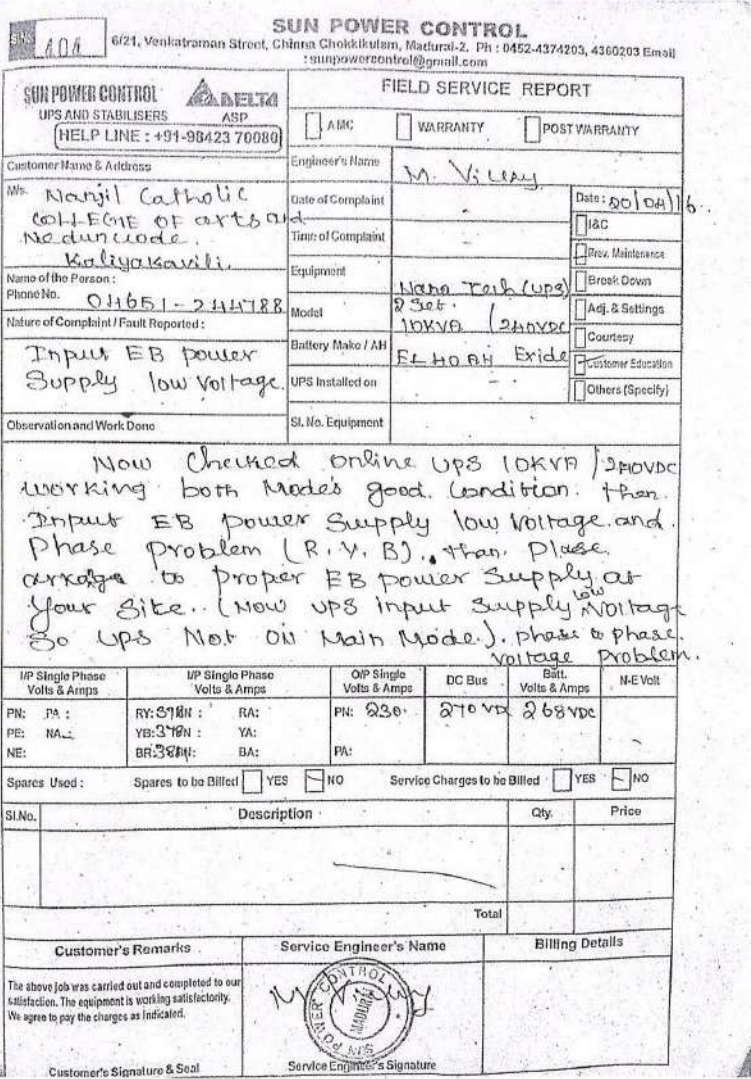 SUN POWER CONTROL
SN. 404
6/21, Venkatraman Street, Chinna Chokkikulam, Madurai-2. Ph : 0452-4374203, 4360203 Email
: sunpowercontrol@gmail.com
SUN POWER CONTROL
UPS AND STABILISERS
DELTA
ASP
HELP LINE : +91-98423 70080
FIELD SERVICE REPORT
AMC WARRANTY POST WARRANTY
Customer Name & Address
M/s. Nanjil Catholic
COLLEGE OF arts and
Neduncode.
Kaliyakavili.
Name of the Person :
Phone No. 04651-244788
Nature of Complaint / Fault Reported :
Input EB power
Supply low voltage.
Engineer's Name M. Vijay
Date of Complaint -
Time of Complaint -
Equipment Nano Tech (UPS)
Model 2 Set.
10KVA / 240VDC
Battery Make / AH Exide
UPS Installed on -
Sl. No. Equipment
Date : 20/04/16.
I&C
Prev. Maintenance
Break Down
Adj. & Settings
Courtesy
Customer Education
Others (Specify)
Observation and Work Done
Now Checked online UPS 10KVA / 240VDC
working both Mode's good. Condition. then.
Input EB power Supply low voltage and
Phase problem (R. Y. B)., than. Plase
to proper EB power Supply at
Your Site.. (Now UPS input Supply low voltage
So UPS Not ON Main Mode.). phase to phase.
voltage problem.
I/P Single Phase
Volts & Amps
PN: PA :
PE: NA..:
NE:
I/P Single Phase
Volts & Amps
RY: RA:
YB: YA:
BR: BA:
O/P Single
Volts & Amps
PN: 230.
PA:
DC Bus
270 VD
Batt.
Volts & Amps
268 VDC
N-E Volt
Spares Used : Spares to be Billed YES NO Service Charges to be Billed YES NO
Sl.No. Description Qty. Price
Total
Customer's Remarks
The above job was carried out and completed to our
satisfaction. The equipment is working satisfactority.
We agree to pay the charges as indicated.
Customer's Signature & Seal
Service Engineer's Name
SUN POWER CONTROL
MADURAI
Service Engineer's Signature
Billing Details